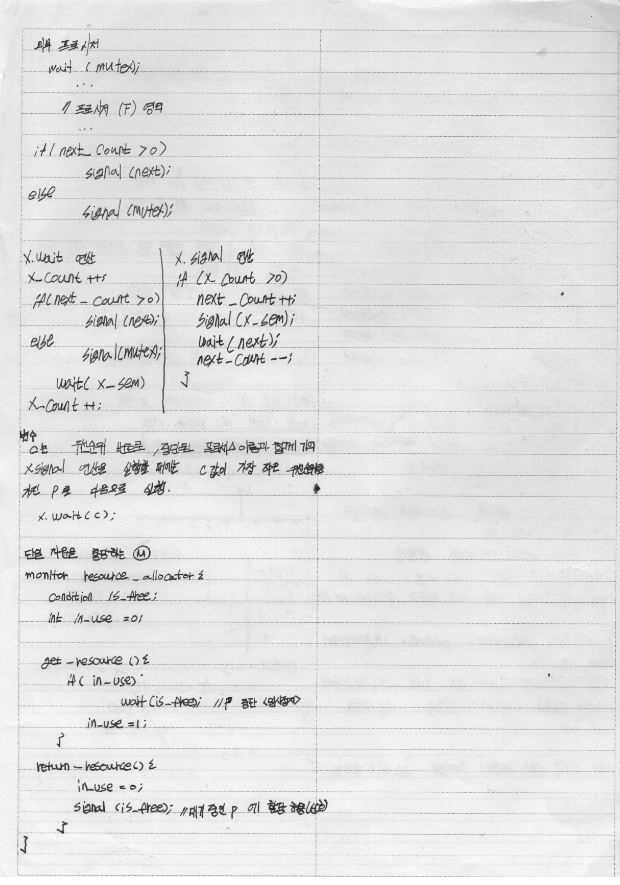 외부 프로시저
wait (mutex);
...
// 프로시저 (F) 영역
...
if( next_count >0)
signal (next);
else
signal (mutex);
X.wait 연산
X_count ++;
if(next_count >0)
signal (next);
else
signal(mutex);
wait( x_sem)
X_count ++;
X. signal 연산
if (X_count >0)
next_count ++;
signal (x_sem);
wait (next);
next_count --;
}
변수
C는 우선순위 번호로, 중단된 프로세스 이름과 함께 기억
X.signal 연산을 실행할 때마다 C값이 가장 작은 우선순위를
가진 P로 다음으로 실행.
x. wait(c);
단일 자원을 할당하는 (M)
monitor resource_allocator {
condition is_free;
int in_use =0;
get_resource () {
if( in_use)
wait(is_free); // P 중단 <일시정지>
in_use =1;
}
return_resource() {
in_use = 0;
signal (is_free); // 대기 중인 P 에 할당 허용
}
}